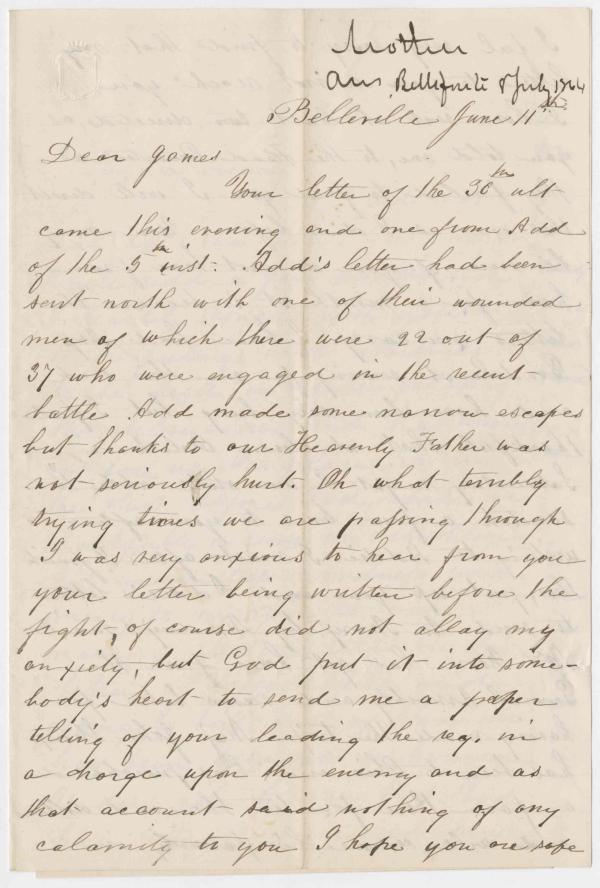 Mother
Ans Bellefonte 8 July 1864
Belleville June 11th
Dear James
Your letter of the 30th ult
came this evening and one from Add
of the 5th inst. Add's letter had been
sent north with one of their wounded
men of which there were 22 out of
37 who were engaged in the recent
battle Add made some narrow escapes
but thanks to our Heavenly Father was
not seriously hurt. Oh what terribly
trying times we are passing through
I was very anxious to hear from you
your letter being written before the
fight, of course did not allay my
anxiety, but God put it into some-
body's heart to send me a paper
telling of your leading the reg. in
a charge upon the enemy and as
that account said nothing of any
calamity to you I hope you are safe